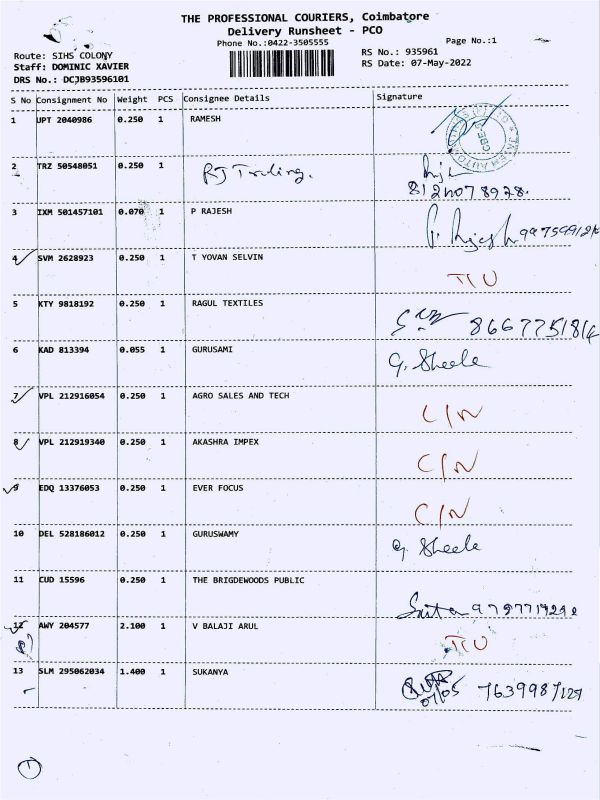 THE PROFESSIONAL COURIERS, Coimbatore
Delivery Runsheet - PCO
Phone No.:0422-3505555
Page No.:1
Route: SIHS COLONY
Staff: DOMINIC XAVIER
DRS No.: DCJB93596101
RS No.: 935961
RS Date: 07-May-2022
S No Consignment No Weight PCS Consignee Details Signature
1 UPT 2040986 0.250 1 RAMESH
2 TRZ 50548051 0.250 1 RJ Trading.
8124078928.
3 IXM 501457101 0.070 1 P RAJESH P. Rajesh
4 SVM 2628923 0.250 1 T YOVAN SELVIN
5 KTY 9818192 0.250 1 RAGUL TEXTILES
6 KAD 813394 0.055 1 GURUSAMI G. Sheela
7 VPL 212916054 0.250 1 AGRO SALES AND TECH C/N
8 VPL 212919340 0.250 1 AKASHRA IMPEX C/N
9 EDQ 13376053 0.250 1 EVER FOCUS C/N
10 DEL 528186012 0.250 1 GURUSWAMY G. Sheela
11 CUD 15596 0.250 1 THE BRIGDEWOODS PUBLIC
12 AWY 204577 2.100 1 V BALAJI ARUL
13 SLM 295062034 1.400 1 SUKANYA 07/05 7639987127
1